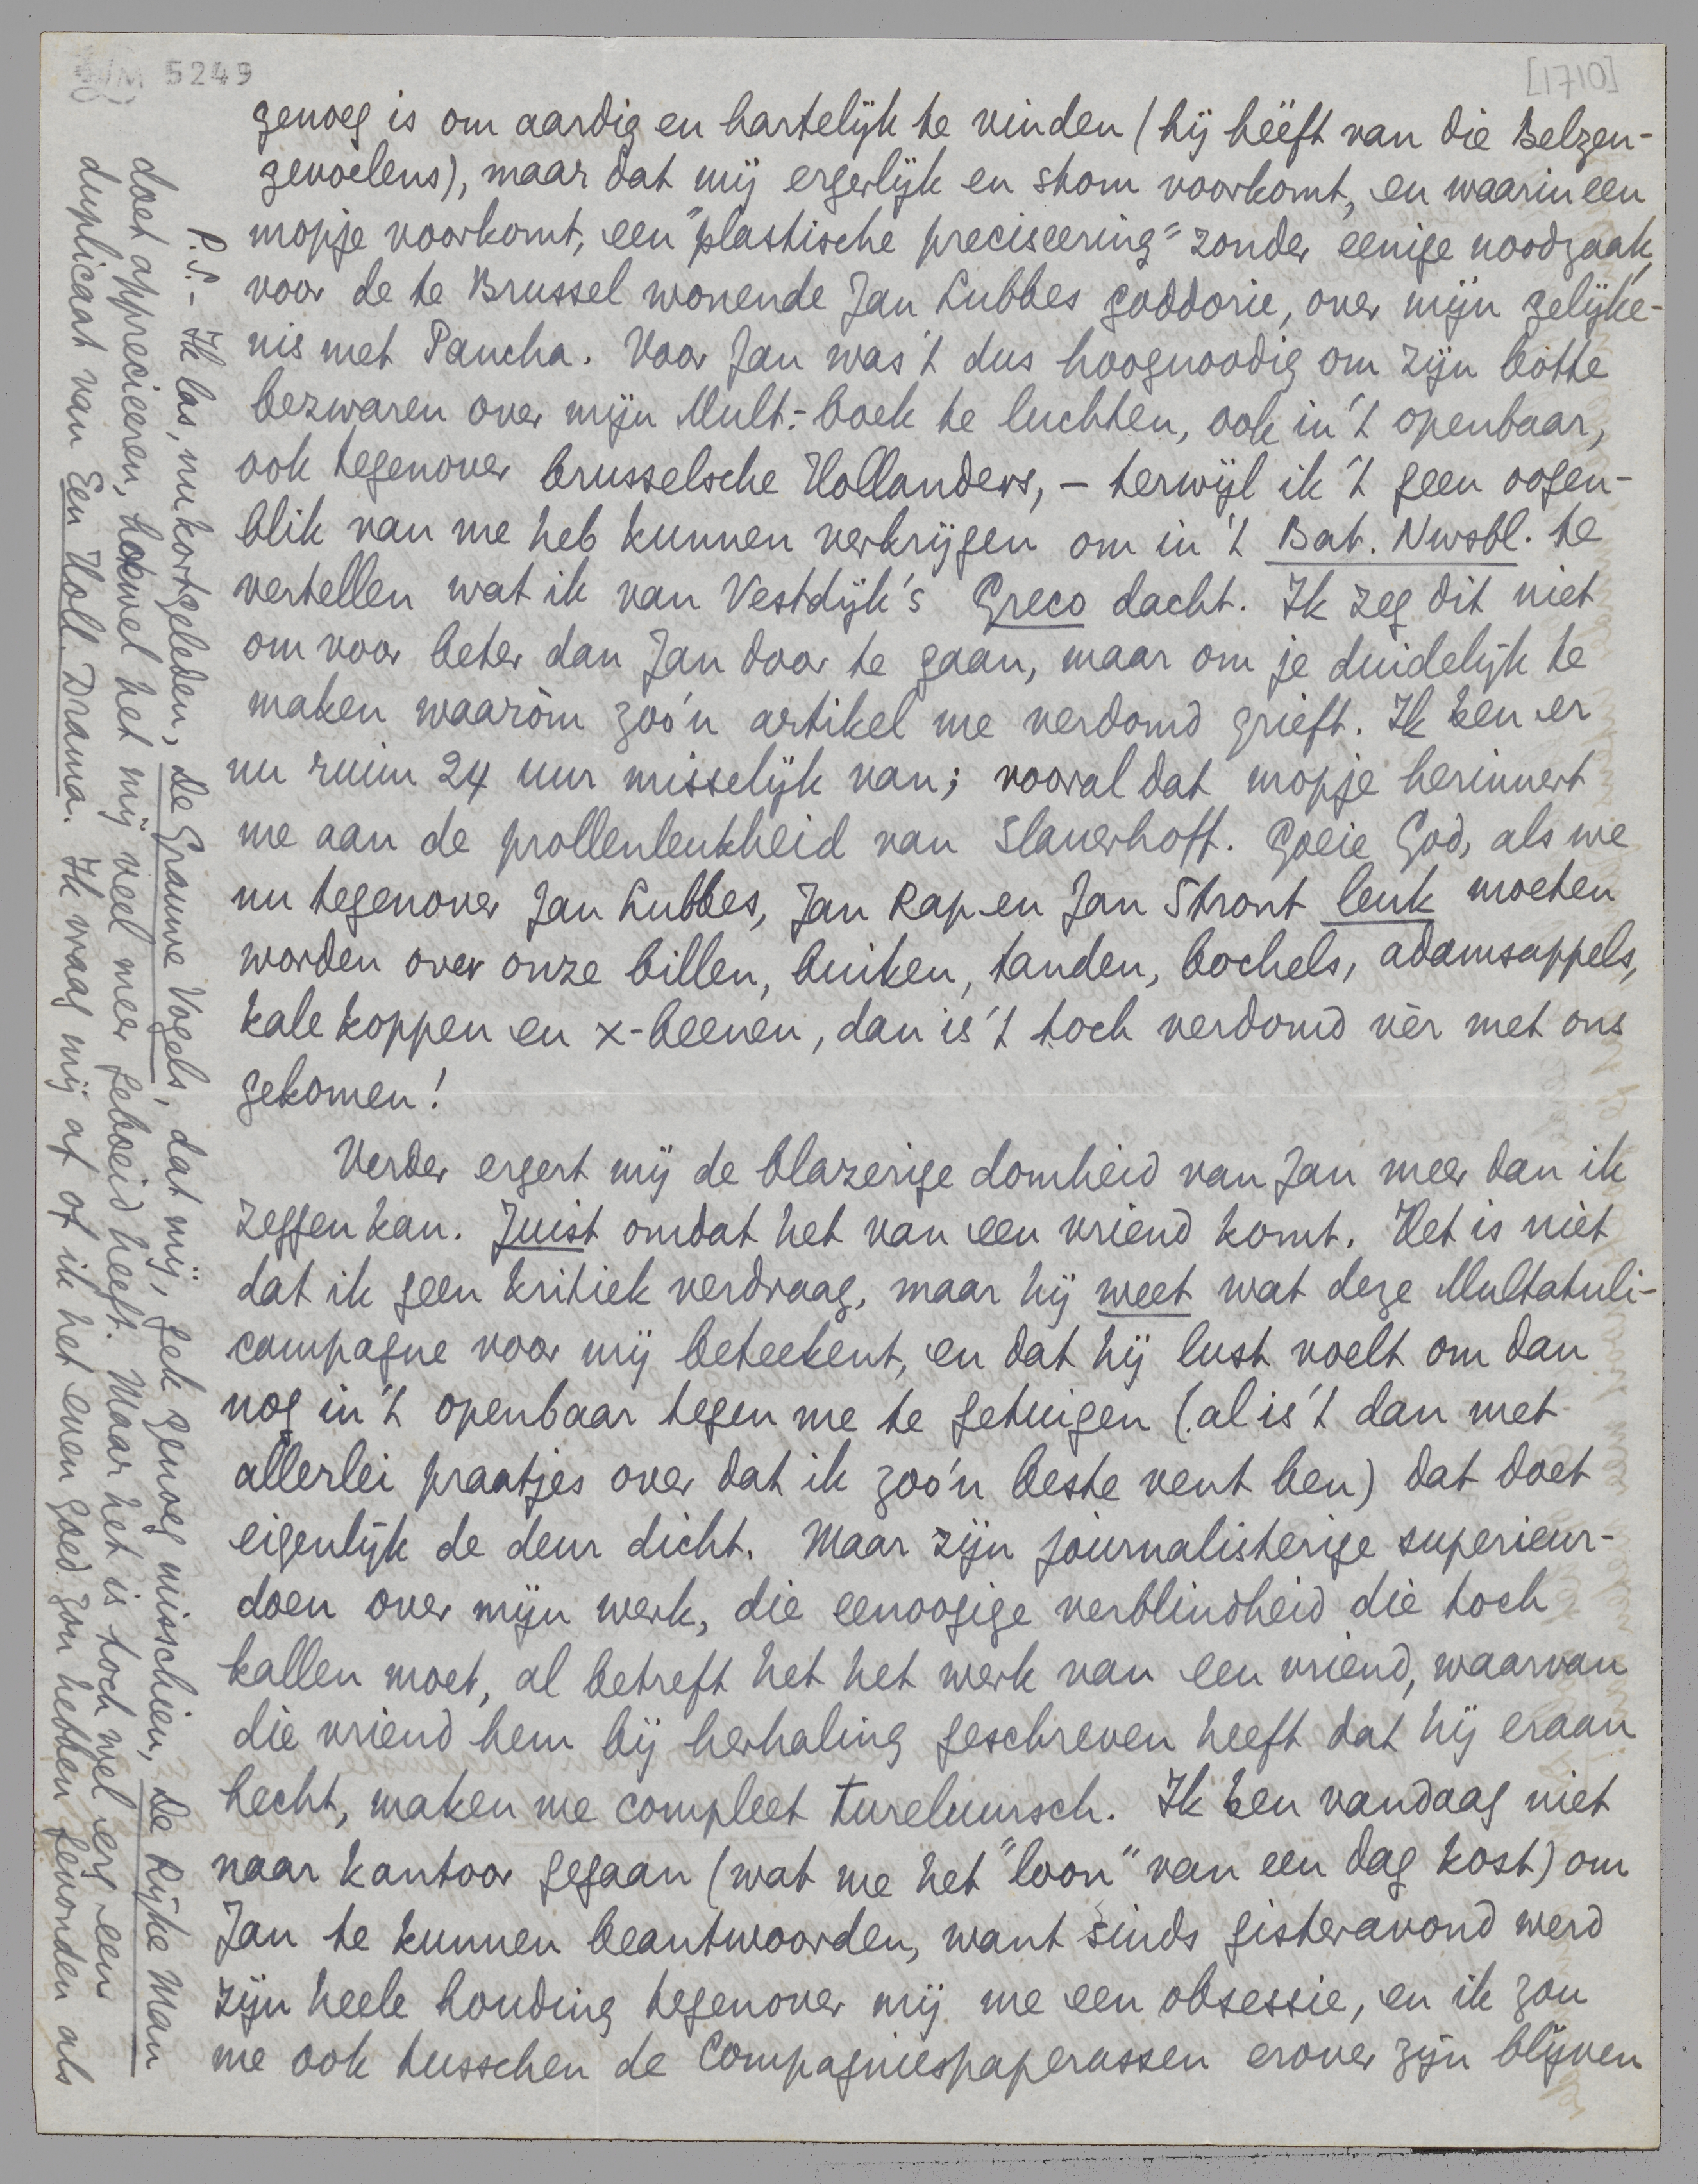 5249
[1710]
genoeg is om aardig en hartelijk te vinden (hij hééft van die Belgen-
gevoelens), maar dat mij ergerlijk en stom voorkomt, en waarin een
mopje voorkomt, een "plastische preciseering" zonder eenige noodzaak,
voor de te Brussel wonende Jan Lubbes goddorie, over mijn gelijke-
nis met Pancha. Voor Jan was 't dus hoognoodig om zijn botte
bezwaren over mijn Mult.-boek te luchten, ook in 't openbaar,
ook tegenover brusselsche Hollanders, – terwijl ik 't geen oogen-
blik van me heb kunnen verkrijgen om in 't Bat. Nwsbl. te
vertellen wat ik van Vestdijk's Greco dacht. Ik zeg dit niet
om voor beter dan Jan door te gaan, maar om je duidelijk te
maken waaròm zoo'n artikel me verdomd grieft. Ik ben er
nu ruim 24 uur misselijk van; vooral dat mopje herinnert
me aan de prollenleukheid van Slauerhoff. Goeie God, als we
nu tegenover Jan Lubbes, Jan Rap en Jan Stront leuk moeten
worden over onze billen, buiken, tanden, bochels, adamsappels,
kale koppen en x-beenen, dan is 't toch verdomd vèr met ons
gekomen!
Verder ergert mij de blazerige domheid van Jan meer dan ik
zeggen kan. Juist omdat het van een vriend komt. Het is niet
dat ik geen kritiek verdraag, maar hij weet wat deze Multatuli-
campagne voor mij beteekent, en dat hij lust voelt om dan
nog in 't openbaar tegen me te getuigen (al is 't dan met
allerlei praatjes over dat ik zoo'n beste vent ben) dat doet
eigenlijk de deur dicht. Maar zijn journalisterige superieur-
doen over mijn werk, die eenoogige verblindheid die toch
kallen moet, al betreft het het werk van een vriend, waarvan
die vriend hem bij herhaling geschreven heeft dat hij eraan
hecht, maken me compleet tureluursch. Ik ben vandaag niet
naar kantoor gegaan (wat me het "loon" van een dag kost) om
Jan te kunnen beantwoorden, want sinds gisteravond werd
zijn heele houding tegenover mij me een obsessie, en ik zou
me ook tusschen de Compagniespaperassen erover zijn blijven
P.S. – Ik las, nu kortgeleden, De Grauwe Vogels, dat mij, gek genoeg misschien, De Rijke Man
doet apprecieeren, hoewel het mij veel meer geboeid heeft. Maar het is toch wel erg een
duplicaat van Een Holl. Drama. Ik vraag mij af of ik het even goed zou hebben gevonden als